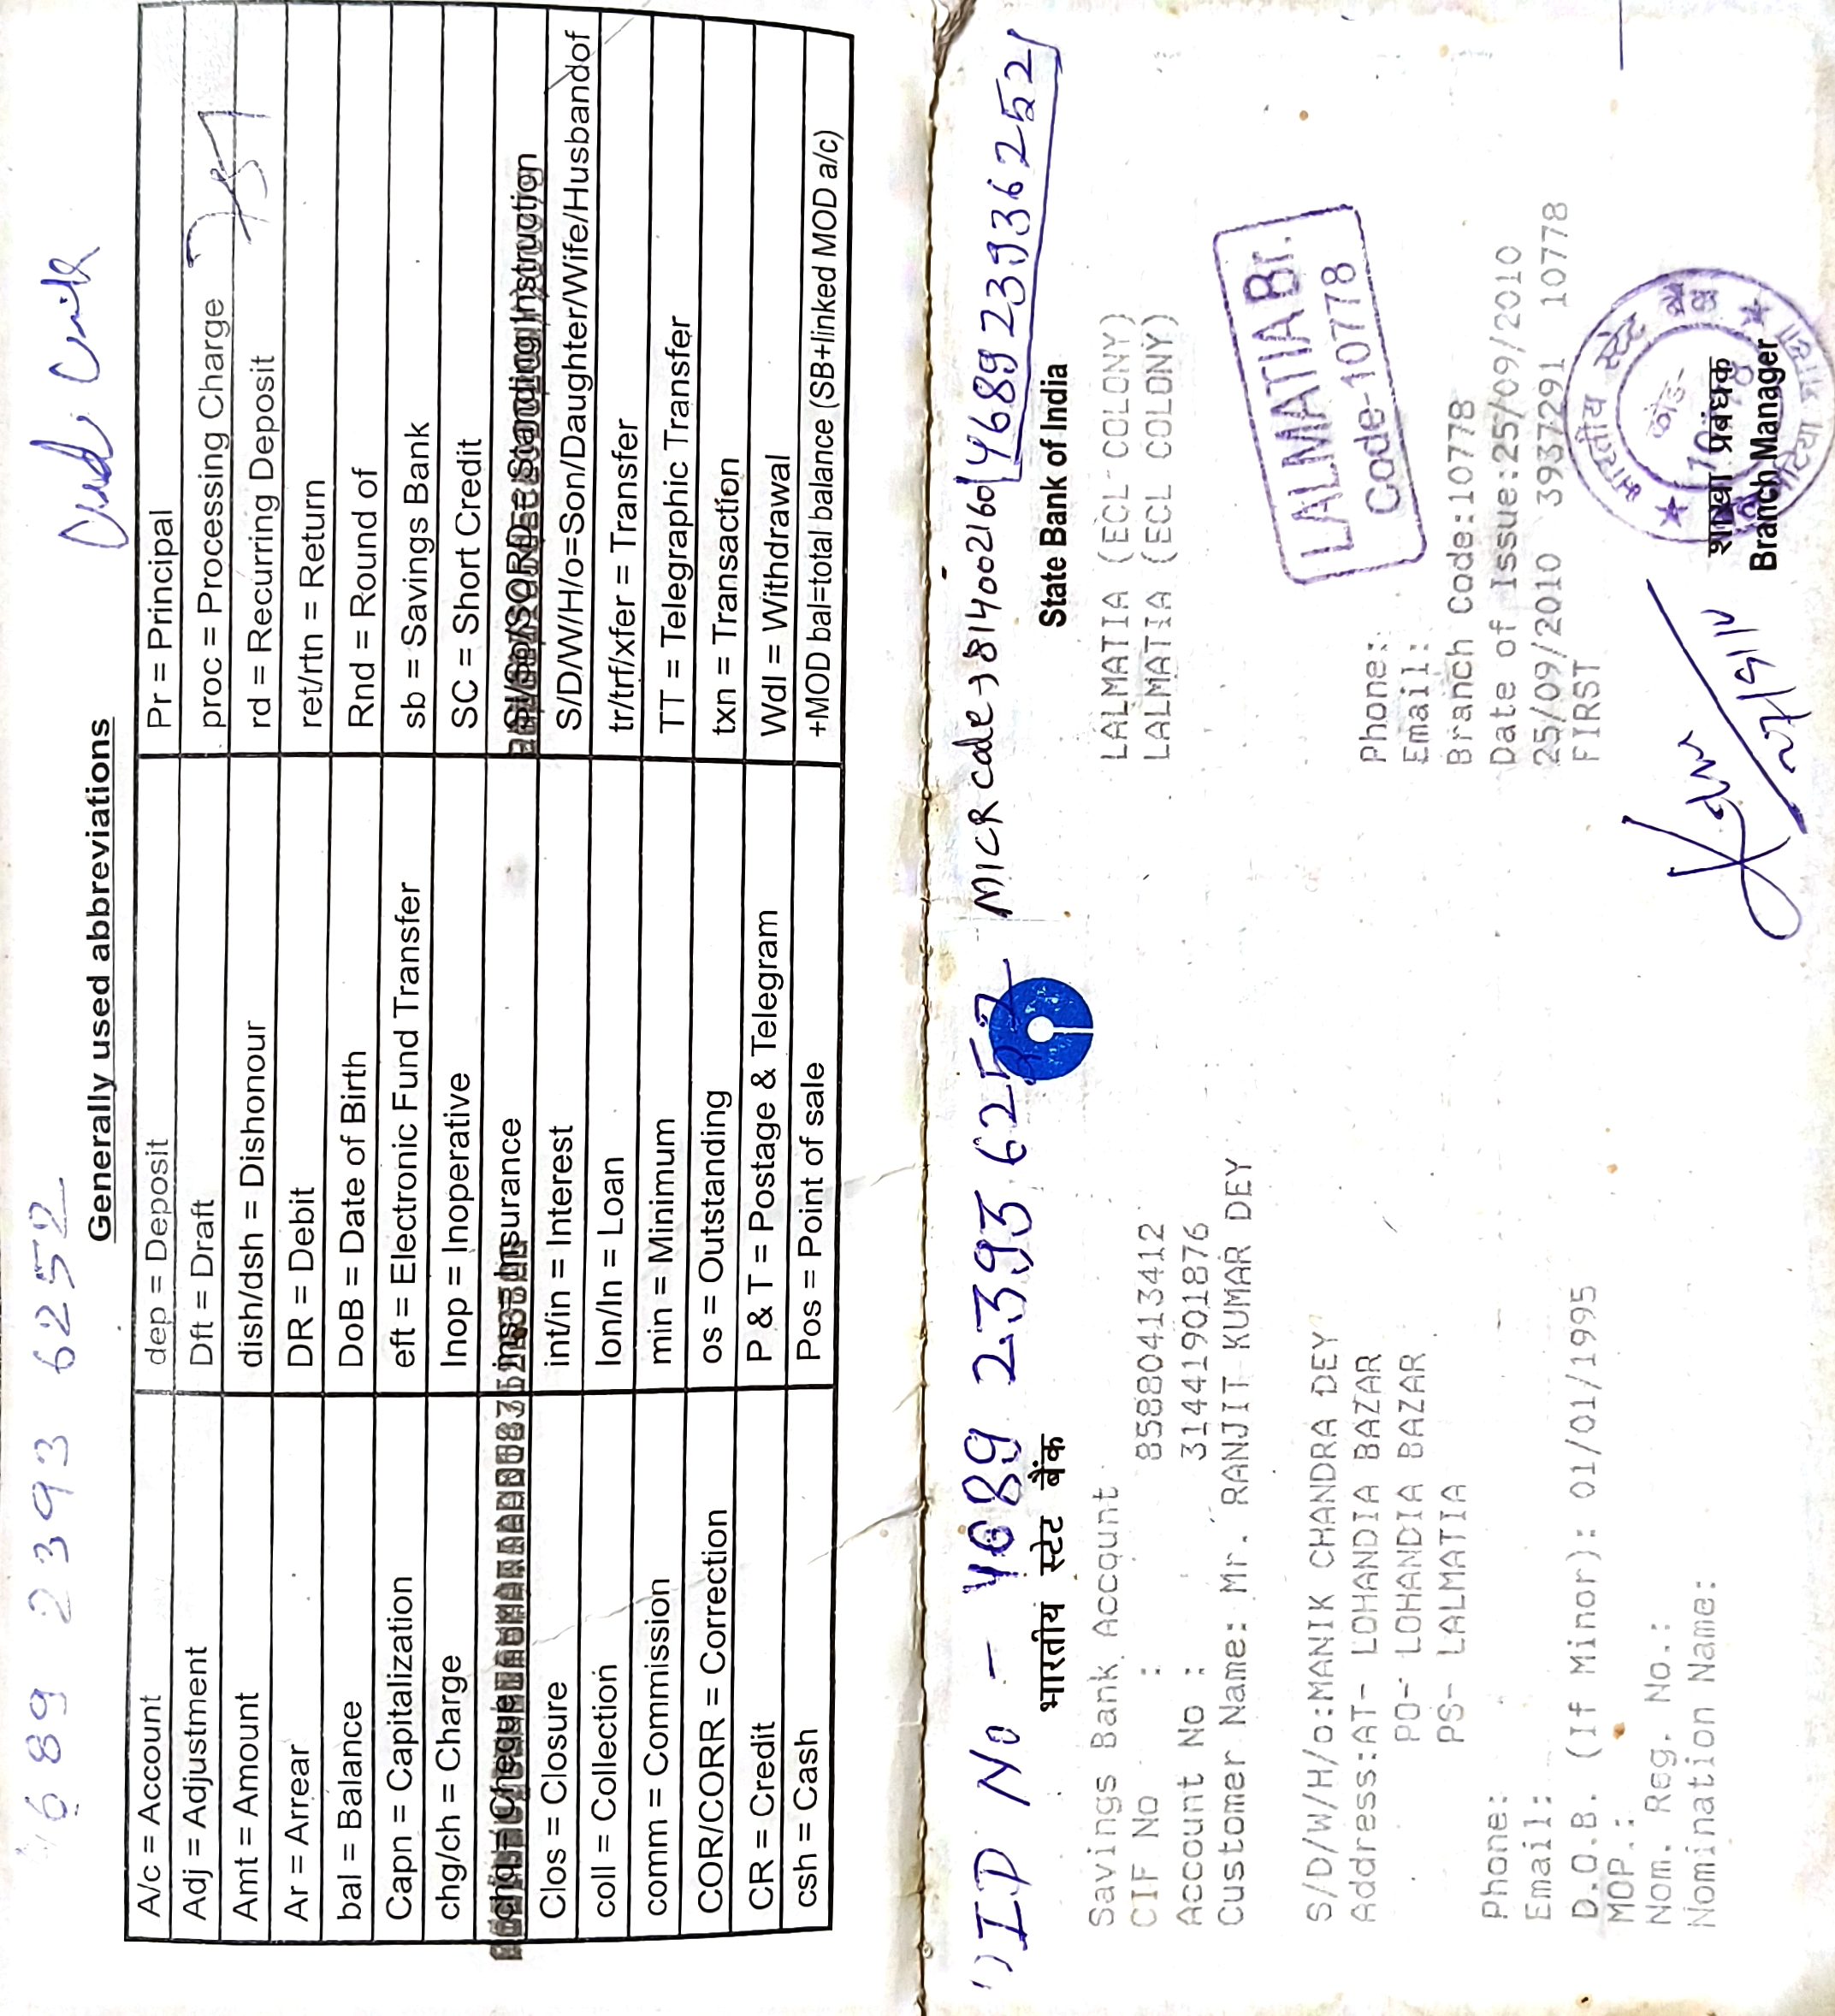 6689 2393 6252
Generally used abbreviations
A/c = Account	dep = Deposit	Pr = Principal
Adj = Adjustment	Dft = Draft	proc = Processing Charge
Amt = Amount	dish/dsh = Dishonour	rd = Recurring Deposit
Ar = Arrear	DR = Debit	ret/rtn = Return
bal = Balance	DoB = Date of Birth	Rnd = Round of
Capn = Capitalization	eft = Electronic Fund Transfer	sb = Savings Bank
chg/ch = Charge	Inop = Inoperative	SC = Short Credit
chq = Cheque	ins = Insurance	SI/So/SORD = Standing Instruction
Clos = Closure	int/in = Interest	S/D/W/H/o=Son/Daughter/Wife/Husbandof
coll = Collection	lon/ln = Loan	tr/trf/xfer = Transfer
comm = Commission	min = Minimum	TT = Telegraphic Transfer
COR/CORR = Correction	os = Outstanding	txn = Transaction
CR = Credit	P & T = Postage & Telegram	Wdl = Withdrawal
csh = Cash	Pos = Point of sale	+MOD bal=total balance (SB+linked MOD a/c)
1) ID No - 4689 2393 6252 MICR Code → 814002160 468923936252
भारतीय स्टेट बैंक State Bank of India
Savings Bank Account LALMATIA (ECL COLONY)
CIF No : 85880413412 LALMATIA (ECL COLONY)
Account No : 31441901876
Customer Name: Mr. RANJIT KUMAR DEY
LALMATIA Br.
Code-10778
S/D/W/H/o:MANIK CHANDRA DEY
Address:AT- LOHANDIA BAZAR
PO- LOHANDIA BAZAR
PS- LALMATIA
Phone: Phone:
Email: Email:
D.O.B. (If Minor): 01/01/1995 Branch Code:10778
MOP.: Date of Issue:25/09/2010
Nom. Reg. No.: 25/09/2010 3937291 10778
Nomination Name: FIRST
भारतीय स्टेट बैंक
कोड-
शाखा प्रबंधक
Branch Manager